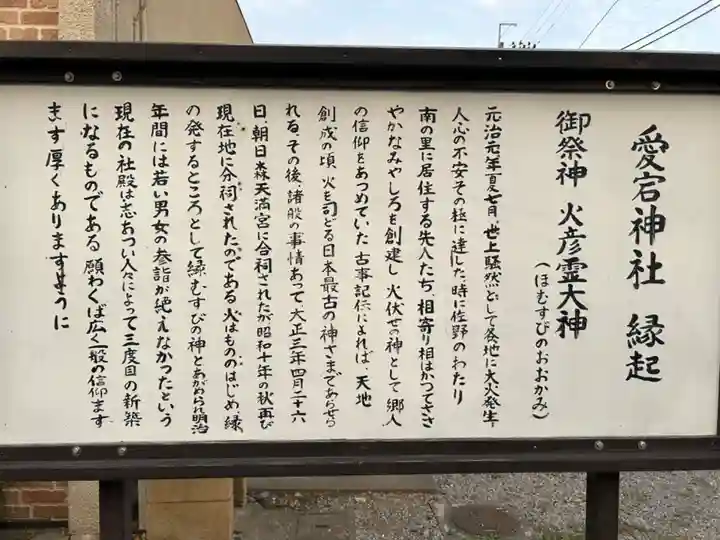 愛宕神社 縁起
御祭神 火彦霊大神
(ほむすびのおおかみ)
元治元年夏七月、世上騒然として各地に大火発生、
人心の不安その極に達した時に佐野のわたり
南の里に居住する先人たち、相寄り相はかつてささ
やかなみやしろを創建し、火伏せの神として郷人
の信仰をあつめていた 古事記伝によれば、天地
創成の頃、火を司どる日本最古の神さまであらせら
れる、その後、諸般の事情あって、大正三年四月二十六
日、朝日森天満宮に合祠されたが昭和十年の秋再び
現在地に分祠されたのである 火はもののはじめ、縁
の発するところとして縁むすびの神とあがめられ明治
年間には若い男女の参詣が絶えなかったという
現在の社殿は志あつい人々によって三度目の新築
になるものである 願わくば広く一般の信仰ます
ます厚くありますように